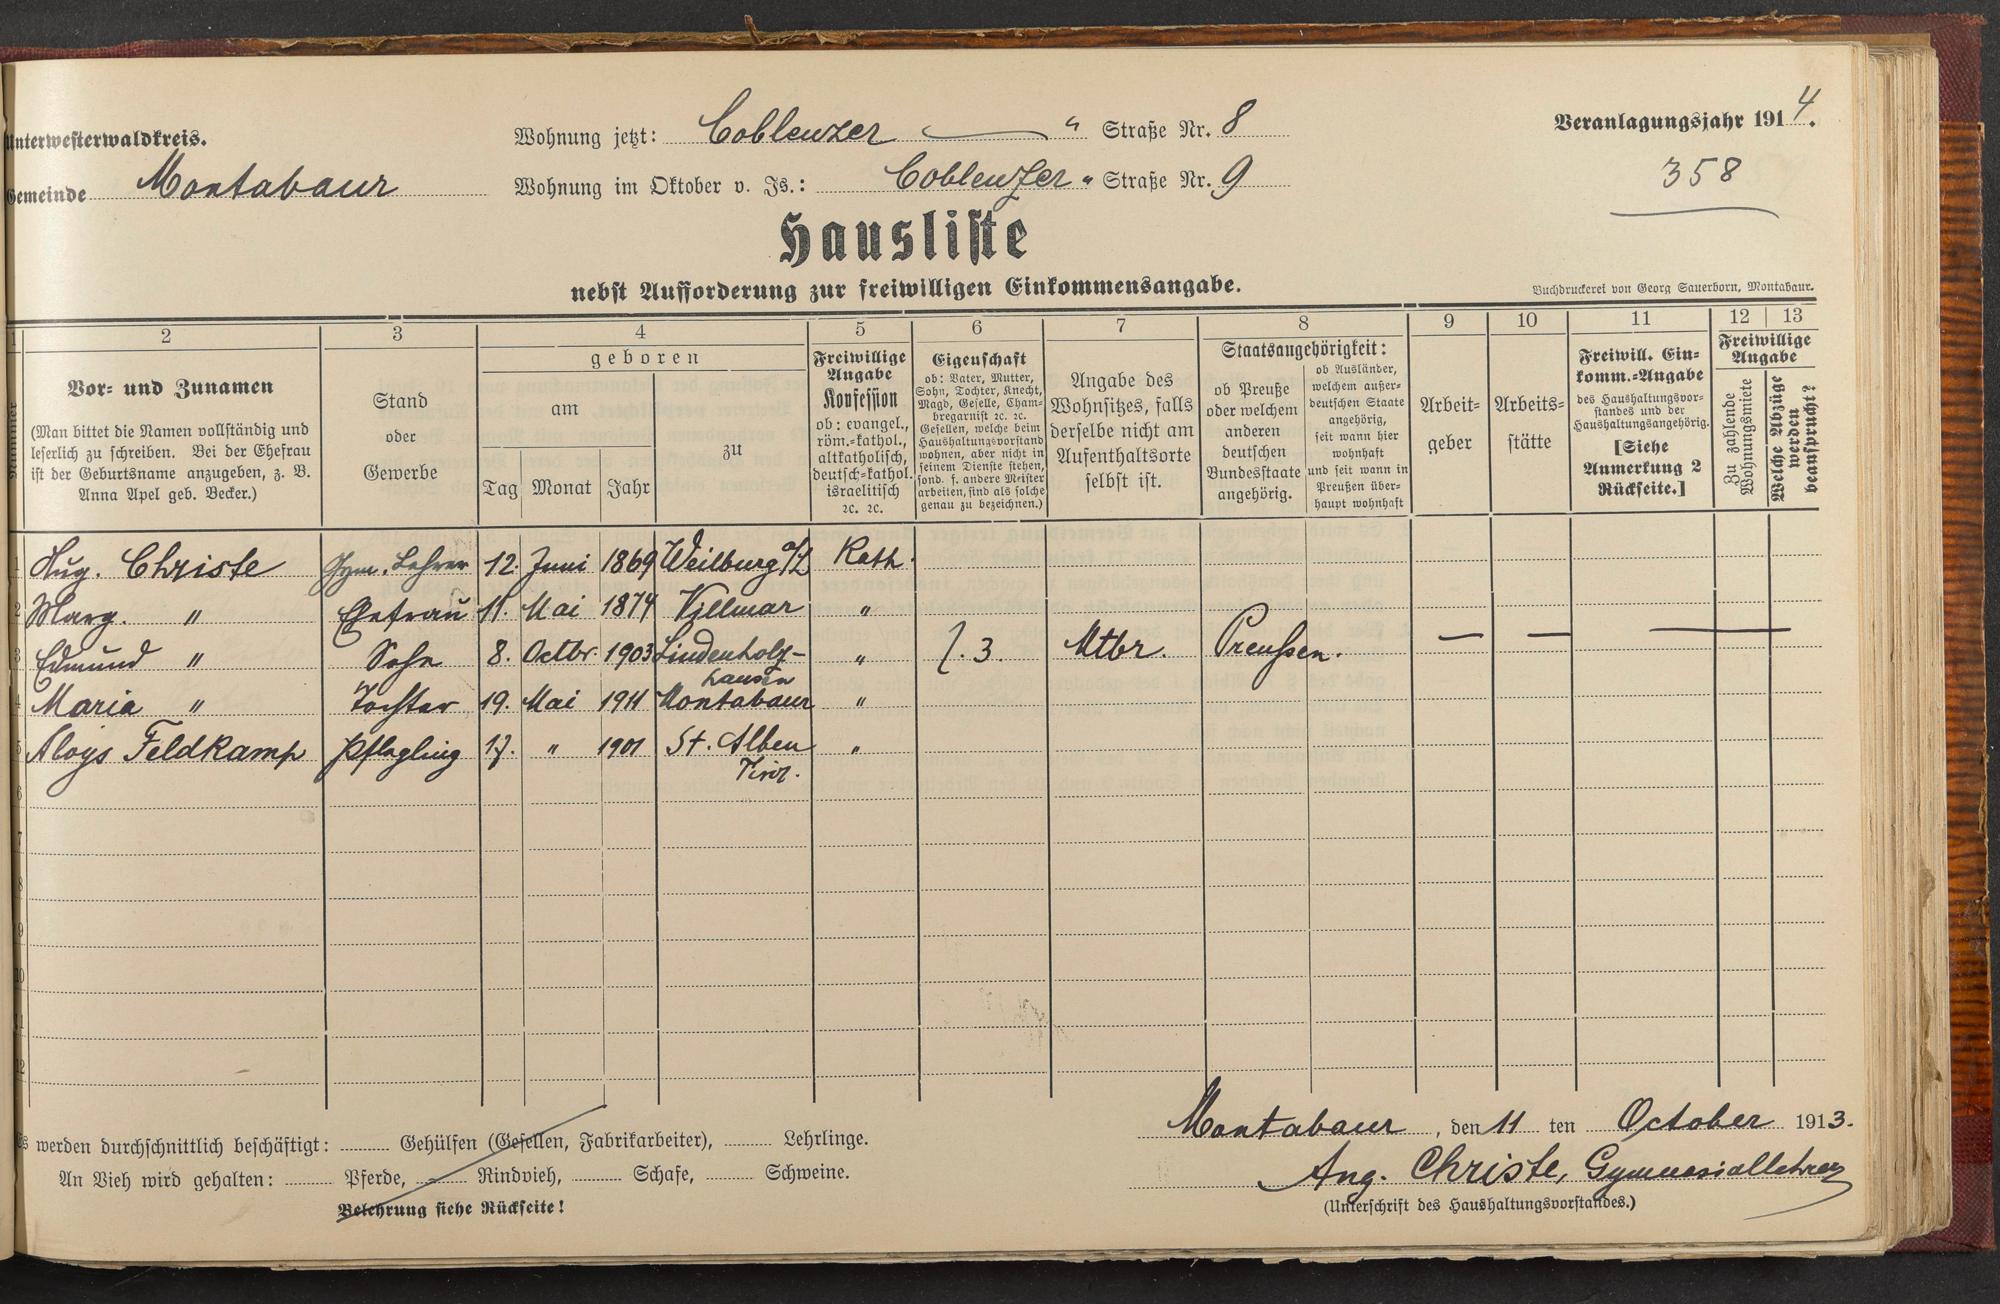 Unterwesterwaldkreis.
Wohnung jetzt: Coblenzer " Straße Nr. 8
Veranlagungsjahr 1914.
Gemeinde Montabaur
Wohnung im Oktober v. Js.: Coblenzer " Straße Nr. 9
358
Hausliste
nebst Aufforderung zur freiwilligen Einkommensangabe.
Buchdruckerei von Georg Sauerborn, Montabaur.
1 2 3 4 5 6 7 8 9 10 11 12 13
Nummer
Vor- und Zunamen
(Man bittet die Namen vollständig und
leserlich zu schreiben. Bei der Ehefrau
ist der Geburtsname anzugeben, z. B.
Anna Apel geb. Becker.)
Stand
oder
Gewerbe
geboren
am
Tag Monat Jahr
zu
Freiwillige
Angabe
Konfession
ob: evangel.,
röm.-kathol.,
altkatholisch,
deutsch-kathol.
israelitisch
ꝛc. ꝛc.
Eigenschaft
ob: Vater, Mutter,
Sohn, Tochter, Knecht,
Magd, Geselle, Cham-
bregarnist ꝛc. ꝛc.
Gesellen, welche beim
Haushaltungsvorstand
wohnen, aber nicht in
seinem Dienste stehen,
sond. f. andere Meister
arbeiten, sind als solche
genau zu bezeichnen.)
Angabe des
Wohnsitzes, falls
derselbe nicht am
Aufenthaltsorte
selbst ist.
Staatsangehörigkeit:
ob Preuße
oder welchem
anderen
deutschen
Bundesstaate
angehörig.
ob Ausländer,
welchem außer-
deutschen Staate
angehörig,
seit wann hier
wohnhaft
und seit wann in
Preußen über-
haupt wohnhaft
Arbeit-
geber
Arbeits-
stätte
Freiwill. Ein-
komm.-Angabe
des Haushaltungsvor-
standes und der
Haushaltungsangehörig.
[Siehe
Anmerkung 2
Rückseite.]
Freiwillige
Angabe
Zu zahlende
Wohnungsmiete
Welche Abzüge
werden
beansprucht?
1 Aug. Christe Gym. Lehrer 12. Juni 1869 Weilburg a/L Kath.
2 Marg. " Ehefrau 11. Mai 1874 Villmar "
3 Edmund " Sohn 8. Octbr. 1903 Lindenholz- " 3. Mtbr. Preußen. — — —
hausen
4 Maria " Tochter 19. Mai 1911 Montabaur "
5 Aloys Feldkamp Pflegling 17. " 1901 St. Alben "
Tirol.
6
7
8
9
10
11
12
Es werden durchschnittlich beschäftigt: Gehülfen (Gesellen, Fabrikarbeiter), Lehrlinge.
An Vieh wird gehalten: Pferde, Rindvieh, Schafe, Schweine.
Belehrung siehe Rückseite!
Montabaur, den 11 ten October 1913.
Aug. Christe, Gymnasiallehrer
(Unterschrift des Haushaltungsvorstandes.)